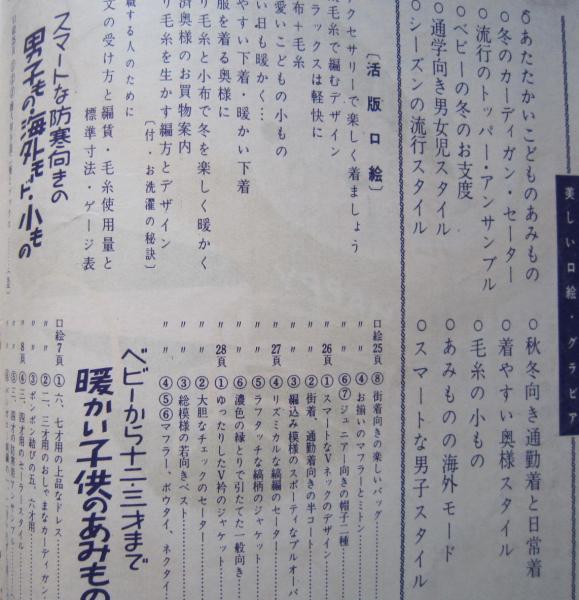 美しい口絵・グラビア
○あたたかいこどものあみもの
○冬のカーディガン・セーター
○流行のトッパー・アンサンブル
○ベビーの冬のお支度
○通学向き男女児スタイル
○シーズンの流行スタイル
○秋冬向き通勤着と日常着
○着やすい奥様スタイル
○毛糸の小もの
○あみものの海外モード
○スマートな男子スタイル
〔活版口絵〕
クセサリーで楽しく着ましょう
毛糸で編むデザイン
ラックスは軽快に
布＋毛糸
愛いこどもの小もの
い日も暖かく…
やすい下着・暖かい下着
服を着る奥様に
り毛糸と小布で冬を楽しく暖かく
済奥様のお買物案内
り毛糸を生かす編方とデザイン
〔付・お洗濯の秘訣〕
職する人のために
文の受け方と編賃・毛糸使用量と
標準寸法・ゲージ表
スマートな防寒向きの
男子もの海外モード・小もの
口絵25頁 ⑧街着向きの楽しいバッグ
〃 ④お揃いのマフラーとミトン
〃 ⑥⑦ジュニアー向きの帽子二種
26頁 ①スマートなVネックのデザイン
〃 ②街着、通勤着向きの半コート
〃 ③編込み模様のスポーティなプルオーバ
27頁 ④リズミカルな縞編のセーター
〃 ⑤ラフタッチな縞柄のジャケット
〃 ⑥濃色の縁とりで引たてた一般向き
28頁 ①ゆったりしたV衿のジャケット
〃 ②大胆なチェックのセーター
〃 ③総模様の若向きベスト
〃 ④⑤⑥マフラー、ボウタイ、ネクタイ
ベビーから十二・三才まで
暖かい子供のあみもの
口絵7頁 ①六、七才用の上品なドレス
〃 ②二、三才用のおしゃまなカーディガン
〃 ③ポンポン結びの五、六才用
8頁 ④三、四才用のセーラースタイル